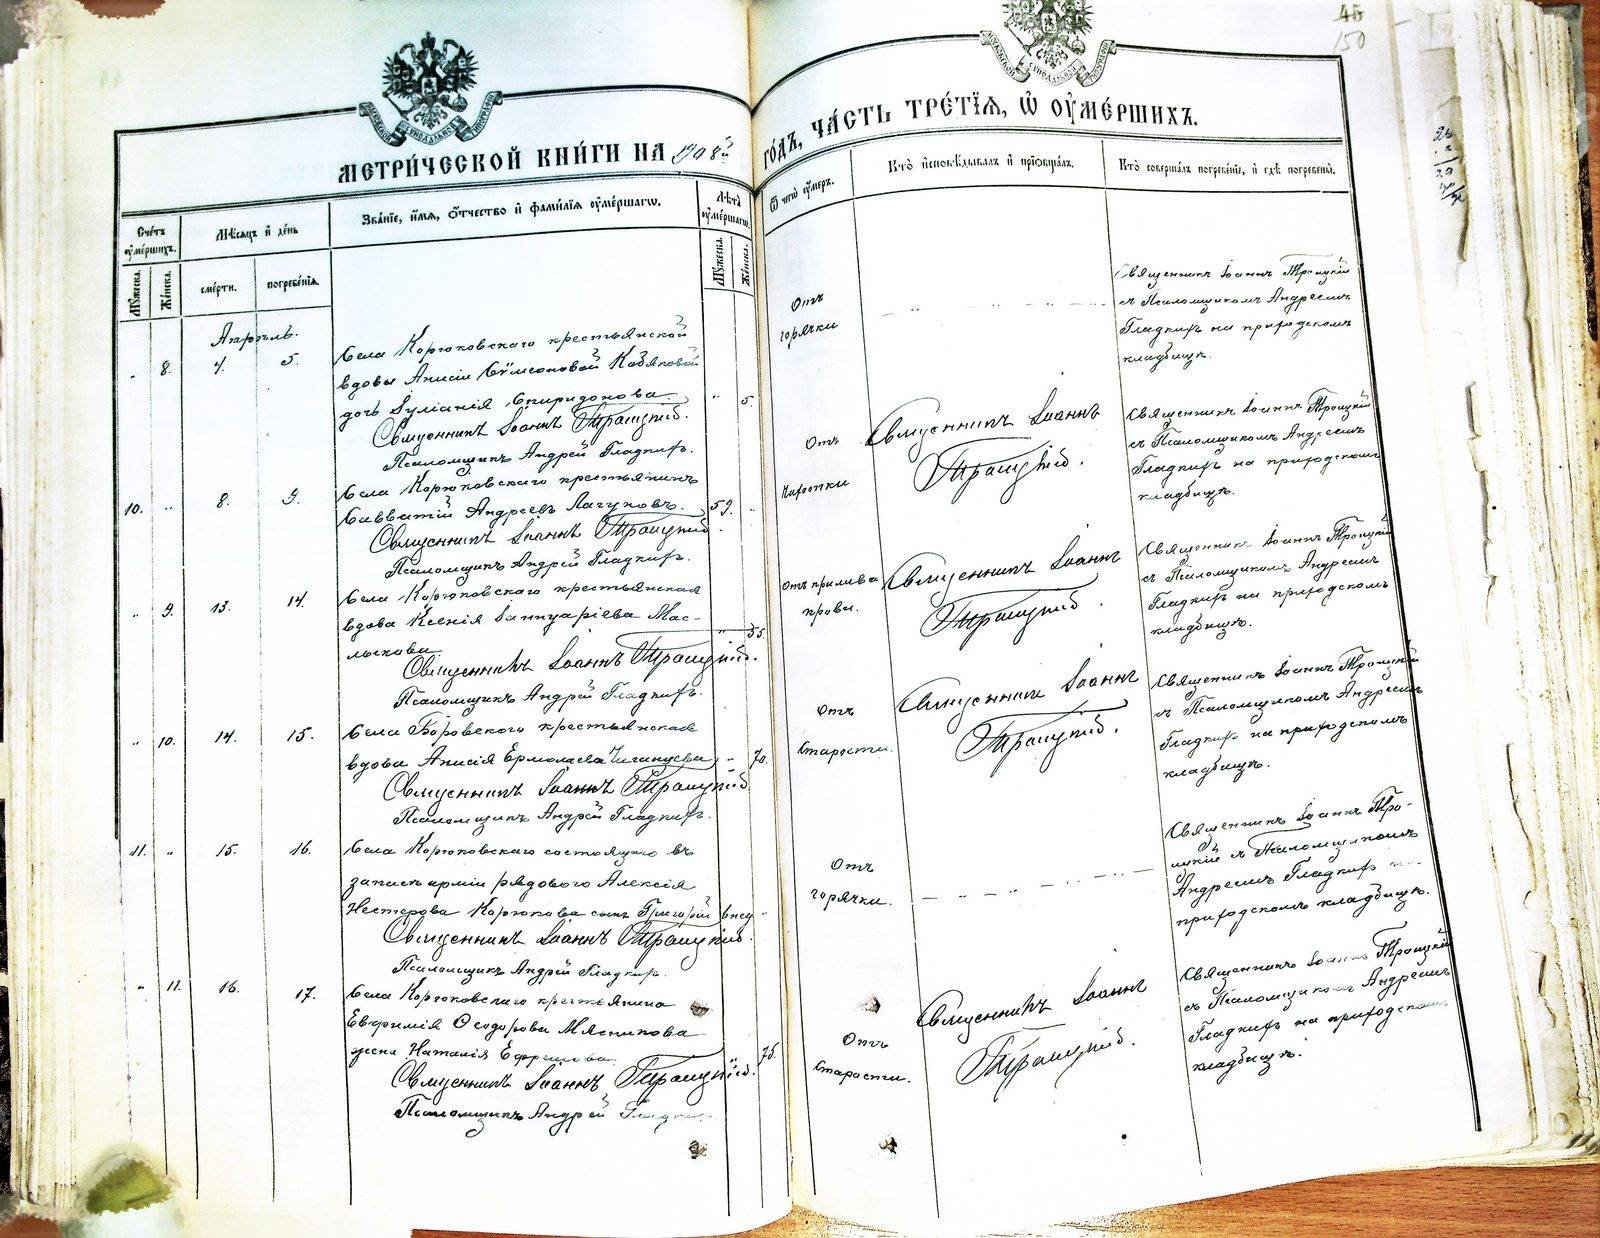 45
150
МЕТРИ́ЧЕСКОЙ КНИ́ГИ НА 1908й
ГО́ДЪ, ЧА́СТЬ ТРЕ́ТІѦ, Ѿ ОУ҆МЕ́РШИХЪ.
Сче́тъ оу҆ме́ршихъ.
Мѣ́сяцъ и҆ де́нь
Зва́нїе, и҆́мѧ, ѻ҆́тчество и҆ фами́лїѧ оу҆ме́ршагѡ.
Лѣ́та оу҆ме́ршагѡ.
Ѿ чегѡ̀ оу҆́меръ.
Кто̀ и҆сповѣ́дывалъ и҆ прїѡбща́лъ.
Кто̀ соверша́лъ погребе́нїе, и҆ гдѣ̀ погребены̀.
Мꙋ́жеска.
Же́нска.
сме́рти.
погребе́нїѧ.
Мꙋ́жеска.
Же́нска.
Апрѣль.
8. 4. 5.
Села Корюковскаго крестьянской
вдовы Анисіи Сумеоновой Кобяковой
дочь Іуліанія Спиридонова. " 5.
Священникъ Іоаннъ Троицкій.
Псаломщикъ Андрей Гладкихъ.
Отъ
горячки
Священникъ Іоаннъ Троицкій
съ Псаломщикомъ Андреемъ
Гладкихъ на приходскомъ
кладбищѣ.
10. " 8. 9.
Села Корюковскаго крестьянинъ
Савватій Андреевъ Лагуновъ. 59. "
Священникъ Іоаннъ Троицкій.
Псаломщикъ Андрей Гладкихъ.
Отъ
Чахотки
Священникъ Іоаннъ
Троицкій.
Священникъ Іоаннъ Троицкій
съ Псаломщикомъ Андреемъ
Гладкихъ на приходскомъ
кладбищѣ.
" 9. 13. 14.
Села Корюковскаго крестьянская
вдова Ксенія Іаннуаріева Мас-
лыкова. " 55.
Священникъ Іоаннъ Троицкій.
Псаломщикъ Андрей Гладкихъ.
Отъ прилива
крови.
Священникъ Іоаннъ
Троицкій.
Священникъ Іоаннъ Троицкій
съ Псаломщикомъ Андреемъ
Гладкихъ на приходскомъ
кладбищѣ.
" 10. 14. 15.
Села Боровского крестьянская
вдова Анисія Ермолаева Чиганцева " 70.
Священникъ Іоаннъ Троицкій.
Псаломщикъ Андрей Гладкихъ.
Отъ
Старости.
Священникъ Іоаннъ
Троицкій.
Священникъ Іоаннъ Троицкій
съ Псаломщикомъ Андреемъ
Гладкихъ на приходскомъ
кладбищѣ.
11. " 15. 16.
Села Корюковскаго состоящаго въ
запасѣ арміи рядового Алексія
Нестерова Корюкова сынъ Григорій 6 нед "
Священникъ Іоаннъ Троицкій.
Псаломщикъ Андрей Гладкихъ.
Отъ
горячки.
Священникъ Іоаннъ Тро-
ицкій съ Псаломщикомъ
Андреемъ Гладкихъ на
приходскомъ кладбищѣ.
" 11. 16. 17.
Села Корюковскаго крестьянина
Евфимія Ѳеодорова Мясникова
жена Наталія Ефремова. " 75.
Священникъ Іоаннъ Троицкій.
Псаломщикъ Андрей Гладкихъ.
Отъ
Старости.
Священникъ Іоаннъ
Троицкій.
Священникъ Іоаннъ Троицкій
съ Псаломщикомъ Андреемъ
Гладкихъ на приходскомъ
кладбищѣ.